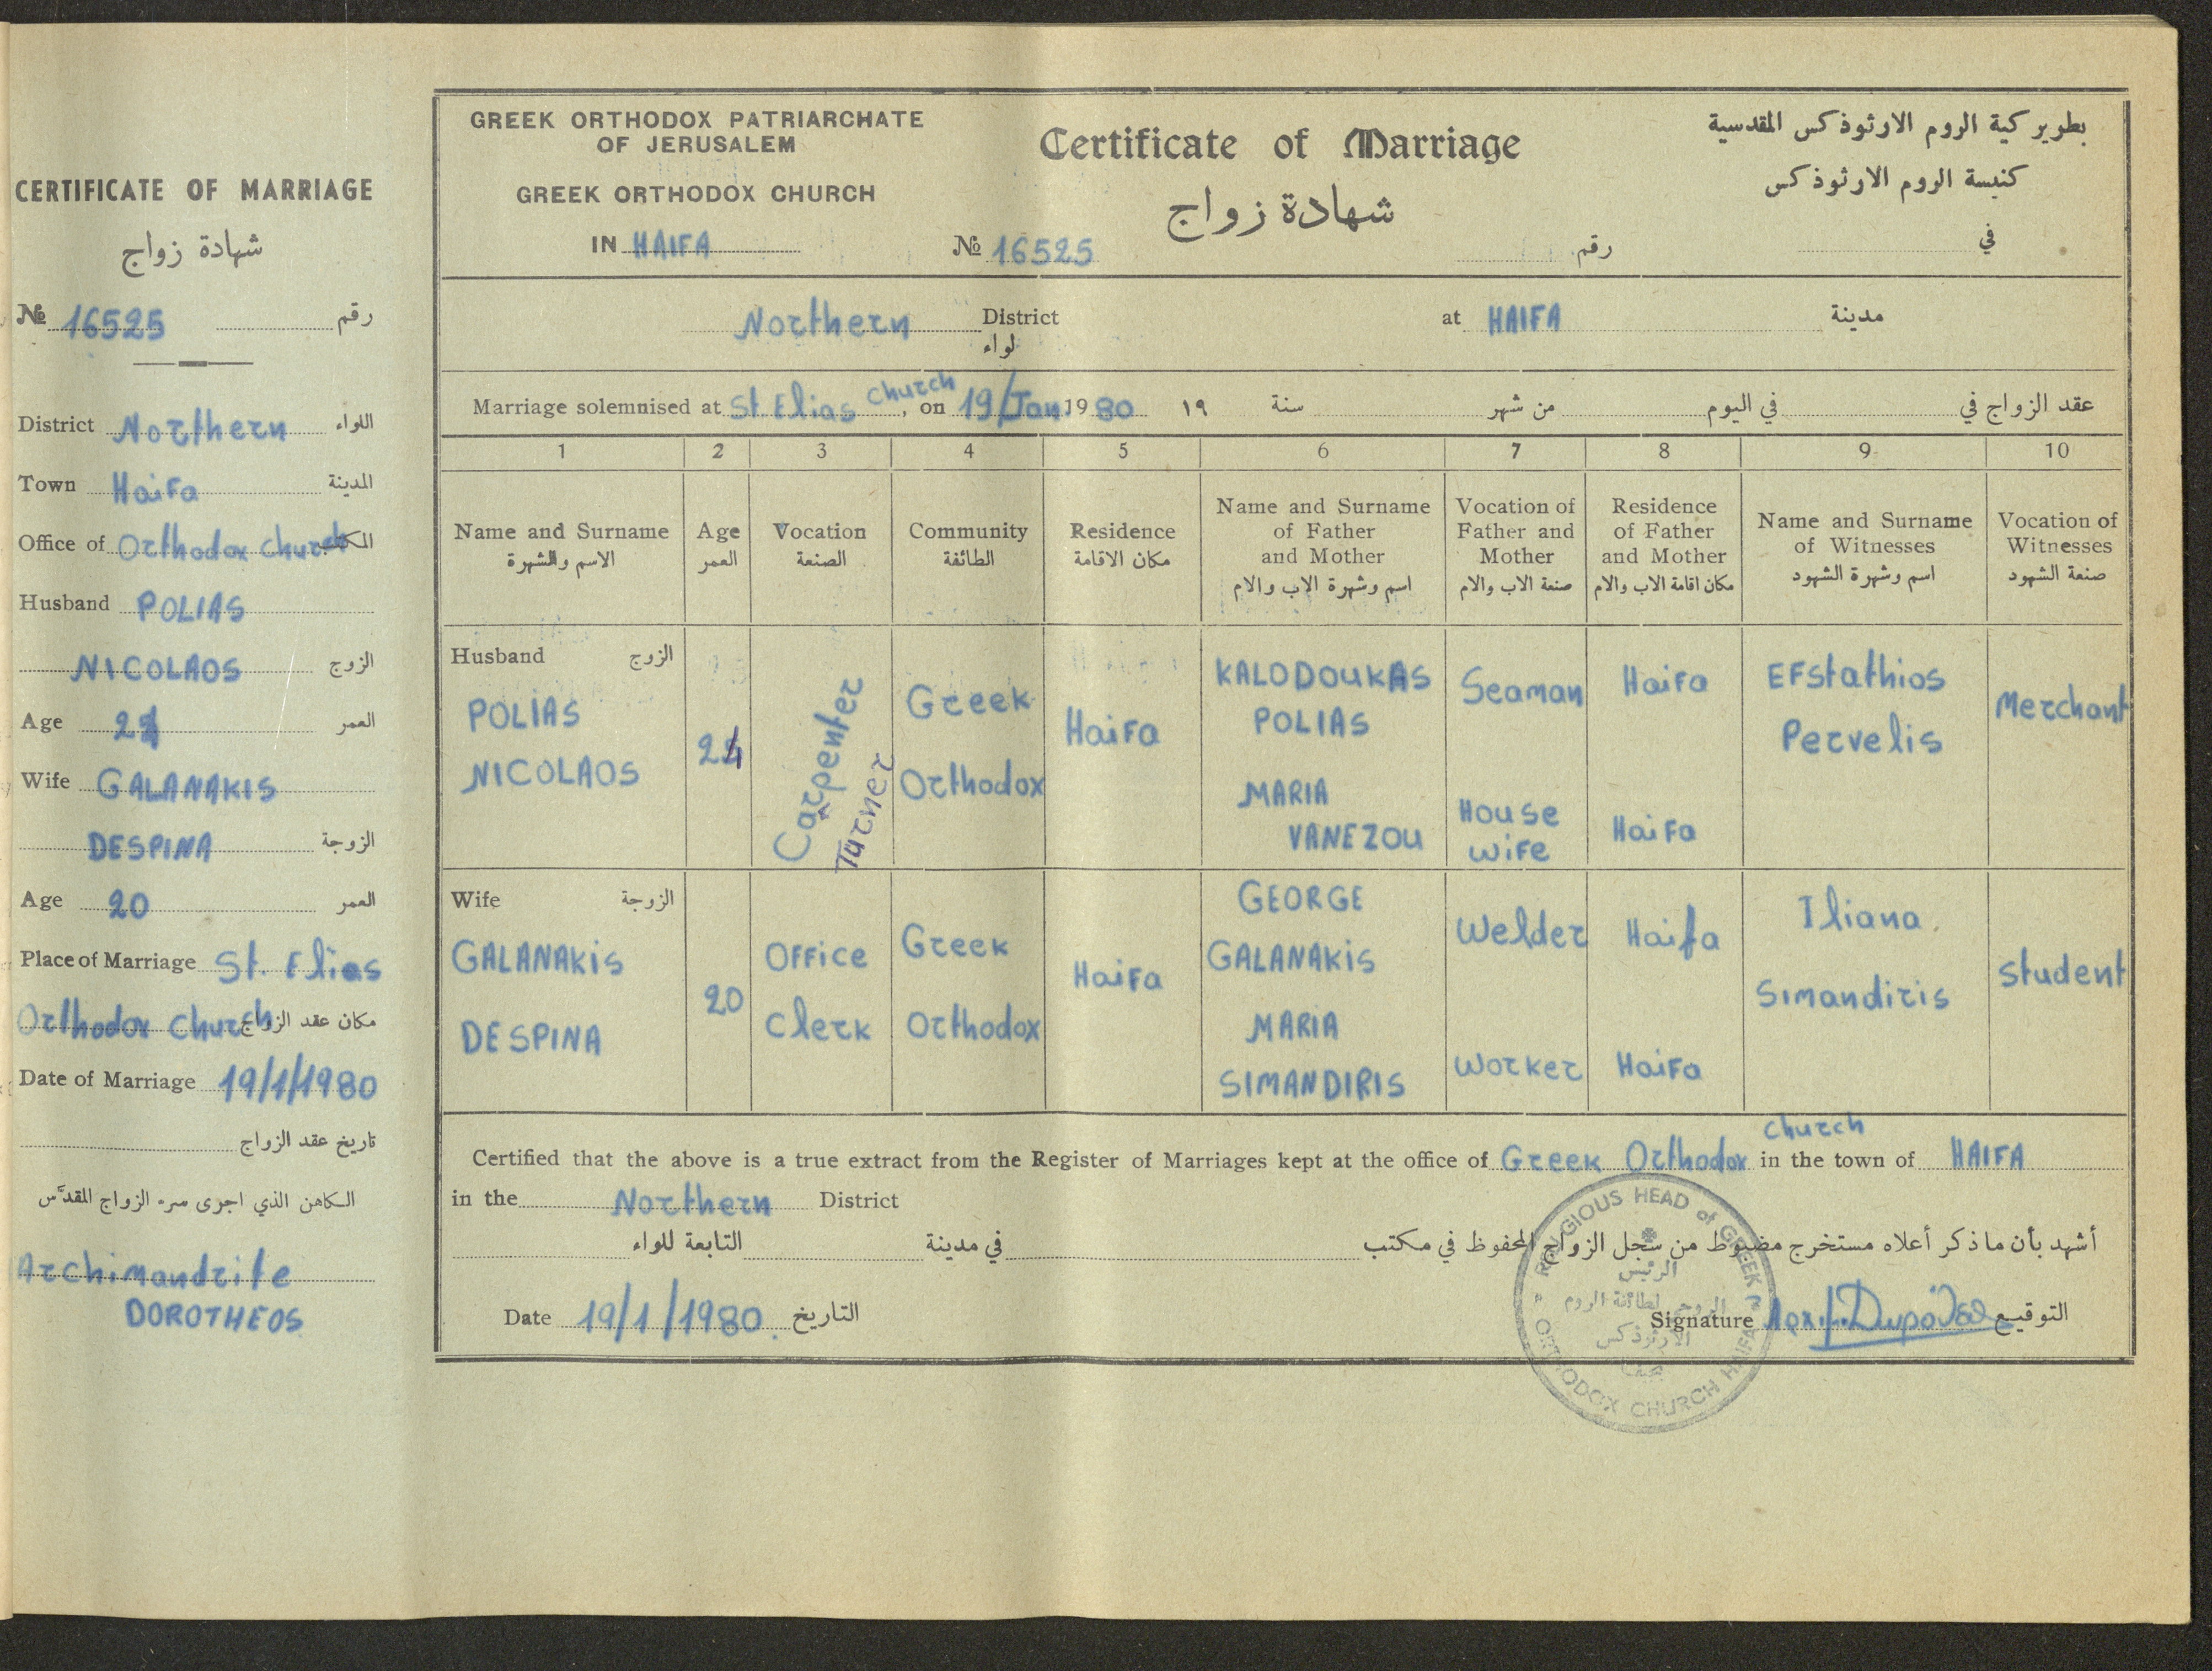 CERTIFICATE OF MARRIAGE
شهادة زواج
№ 16525 رقم
District Northern اللواء
Town Haifa المدينة
Office of Orthodox Church المكتب
Husband POLIAS
NICOLAOS الزوج
Age 24 العمر
Wife GALANAKIS
DESPINA الزوجة
Age 20 العمر
Place of Marriage St. Elias
Orthodox Church مكان عقد الزواج
Date of Marriage 19/1/1980
تاريخ عقد الزواج
الكاهن الذي اجرى سر الزواج المقدّس
Archimandrite
DOROTHEOS
GREEK ORTHODOX PATRIARCHATE
OF JERUSALEM
GREEK ORTHODOX CHURCH
IN HAIFA
Certificate of Marriage
شهادة زواج
№ 16525 رقم
بطوير كية الروم الارثوذكس المقدسية
كنيسة الروم الارثوذكس
في
Northern District
لواء
at HAIFA مدينة
Marriage solemnised at St Elias Church, on 19/Jan 1980 ١٩ سنة من شهر في اليوم عقد الزواج في
1 2 3 4 5 6 7 8 9 10
Name and Surname
الاسم والشهرة
Age
العمر
Vocation
الصنعة
Community
الطائفة
Residence
مكان الاقامة
Name and Surname
of Father
and Mother
اسم وشهرة الاب والام
Vocation of
Father and
Mother
صنعة الاب والام
Residence
of Father
and Mother
مكان اقامة الاب والام
Name and Surname
of Witnesses
اسم وشهرة الشهود
Vocation of
Witnesses
صنعة الشهود
Husband الزوج
POLIAS
NICOLAOS
24
Carpenter
Turner
Greek
Orthodox
Haifa
KALODOUKAS
POLIAS
MARIA
VANEZOU
Seaman
House
wife
Haifa
Haifa
EFstathios
Pervelis
Merchant
Wife الزوجة
GALANAKIS
DESPINA
20
OFFice
Clerk
Greek
Orthodox
Haifa
GEORGE
GALANAKIS
MARIA
SIMANDIRIS
Welder
Worker
Haifa
Haifa
Iliana
Simandiris
Student
Certified that the above is a true extract from the Register of Marriages kept at the office of Greek Orthodox Church in the town of HAIFA
in the Northern District
أشهد بأن ما ذكر أعلاه مستخرج مضبوط من سجل الزواج المحفوظ في مكتب في مدينة التابعة للواء
Date 19/1/1980 التاريخ
Signature التوقيع
RELIGIOUS HEAD of GREEK ORTHODOX CHURCH HAIFA
الرئيس
الروحي لطائفة الروم
الارثوذكس